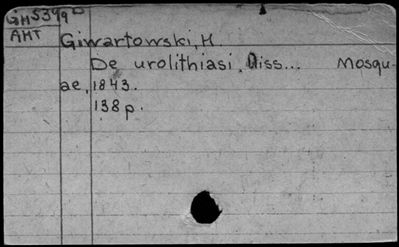 GM5399
AMT
Giwartowski, H.
De urolithiasi. Diss... Mosqu-
ae, 1843.
138 p.